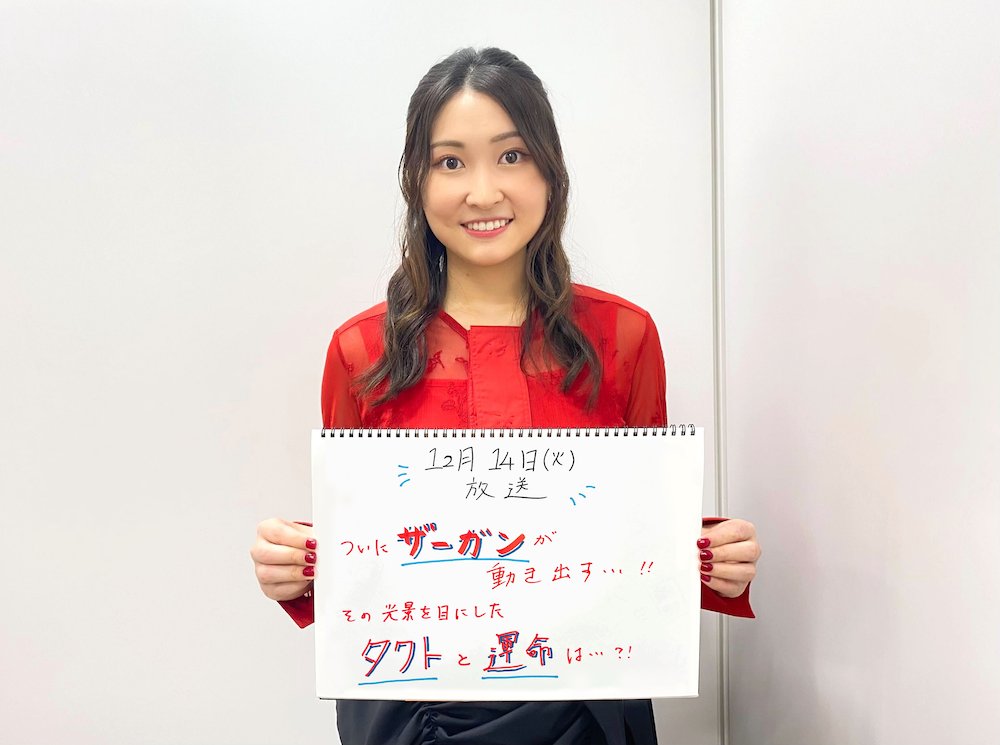 12月14日(火)
放送
ついにザーガンが
動き出す…!!
その光景を目にした
タクトと運命は…?!